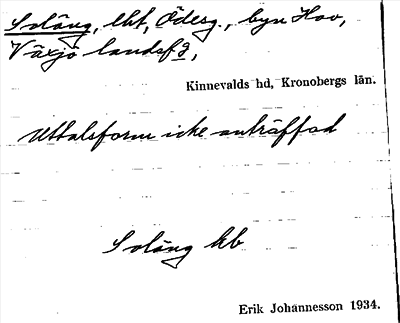 Soläng, lht, Ödesg., byn Hov,
Växjö landsf 3,
Kinnevalds hd, Kronobergs län.
Uttalsform icke anträffad
Soläng hb
Erik Johannesson 1934.